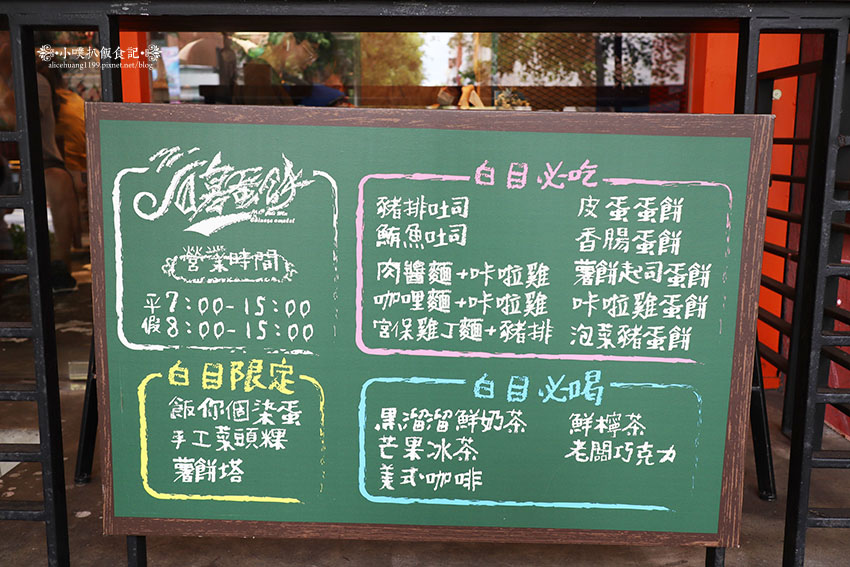 •小噗扒飯食記•
alicehuang1199.pixnet.net/blog
蛋餅
營業時間
平 7:00-15:00
假 8:00-15:00
白目限定
飯你個染蛋
手工菜頭粿
薯餅塔
白目必吃
豬排吐司
鮪魚吐司
肉醬麵+咔啦雞
咖哩麵+咔啦雞
宮保雞丁麵+豬排
皮蛋蛋餅
香腸蛋餅
薯餅起司蛋餅
咔啦雞蛋餅
泡菜豬蛋餅
白目必喝
黑溜溜鮮奶茶
芒果冰茶
美式咖啡
鮮檸茶
老闆巧克力